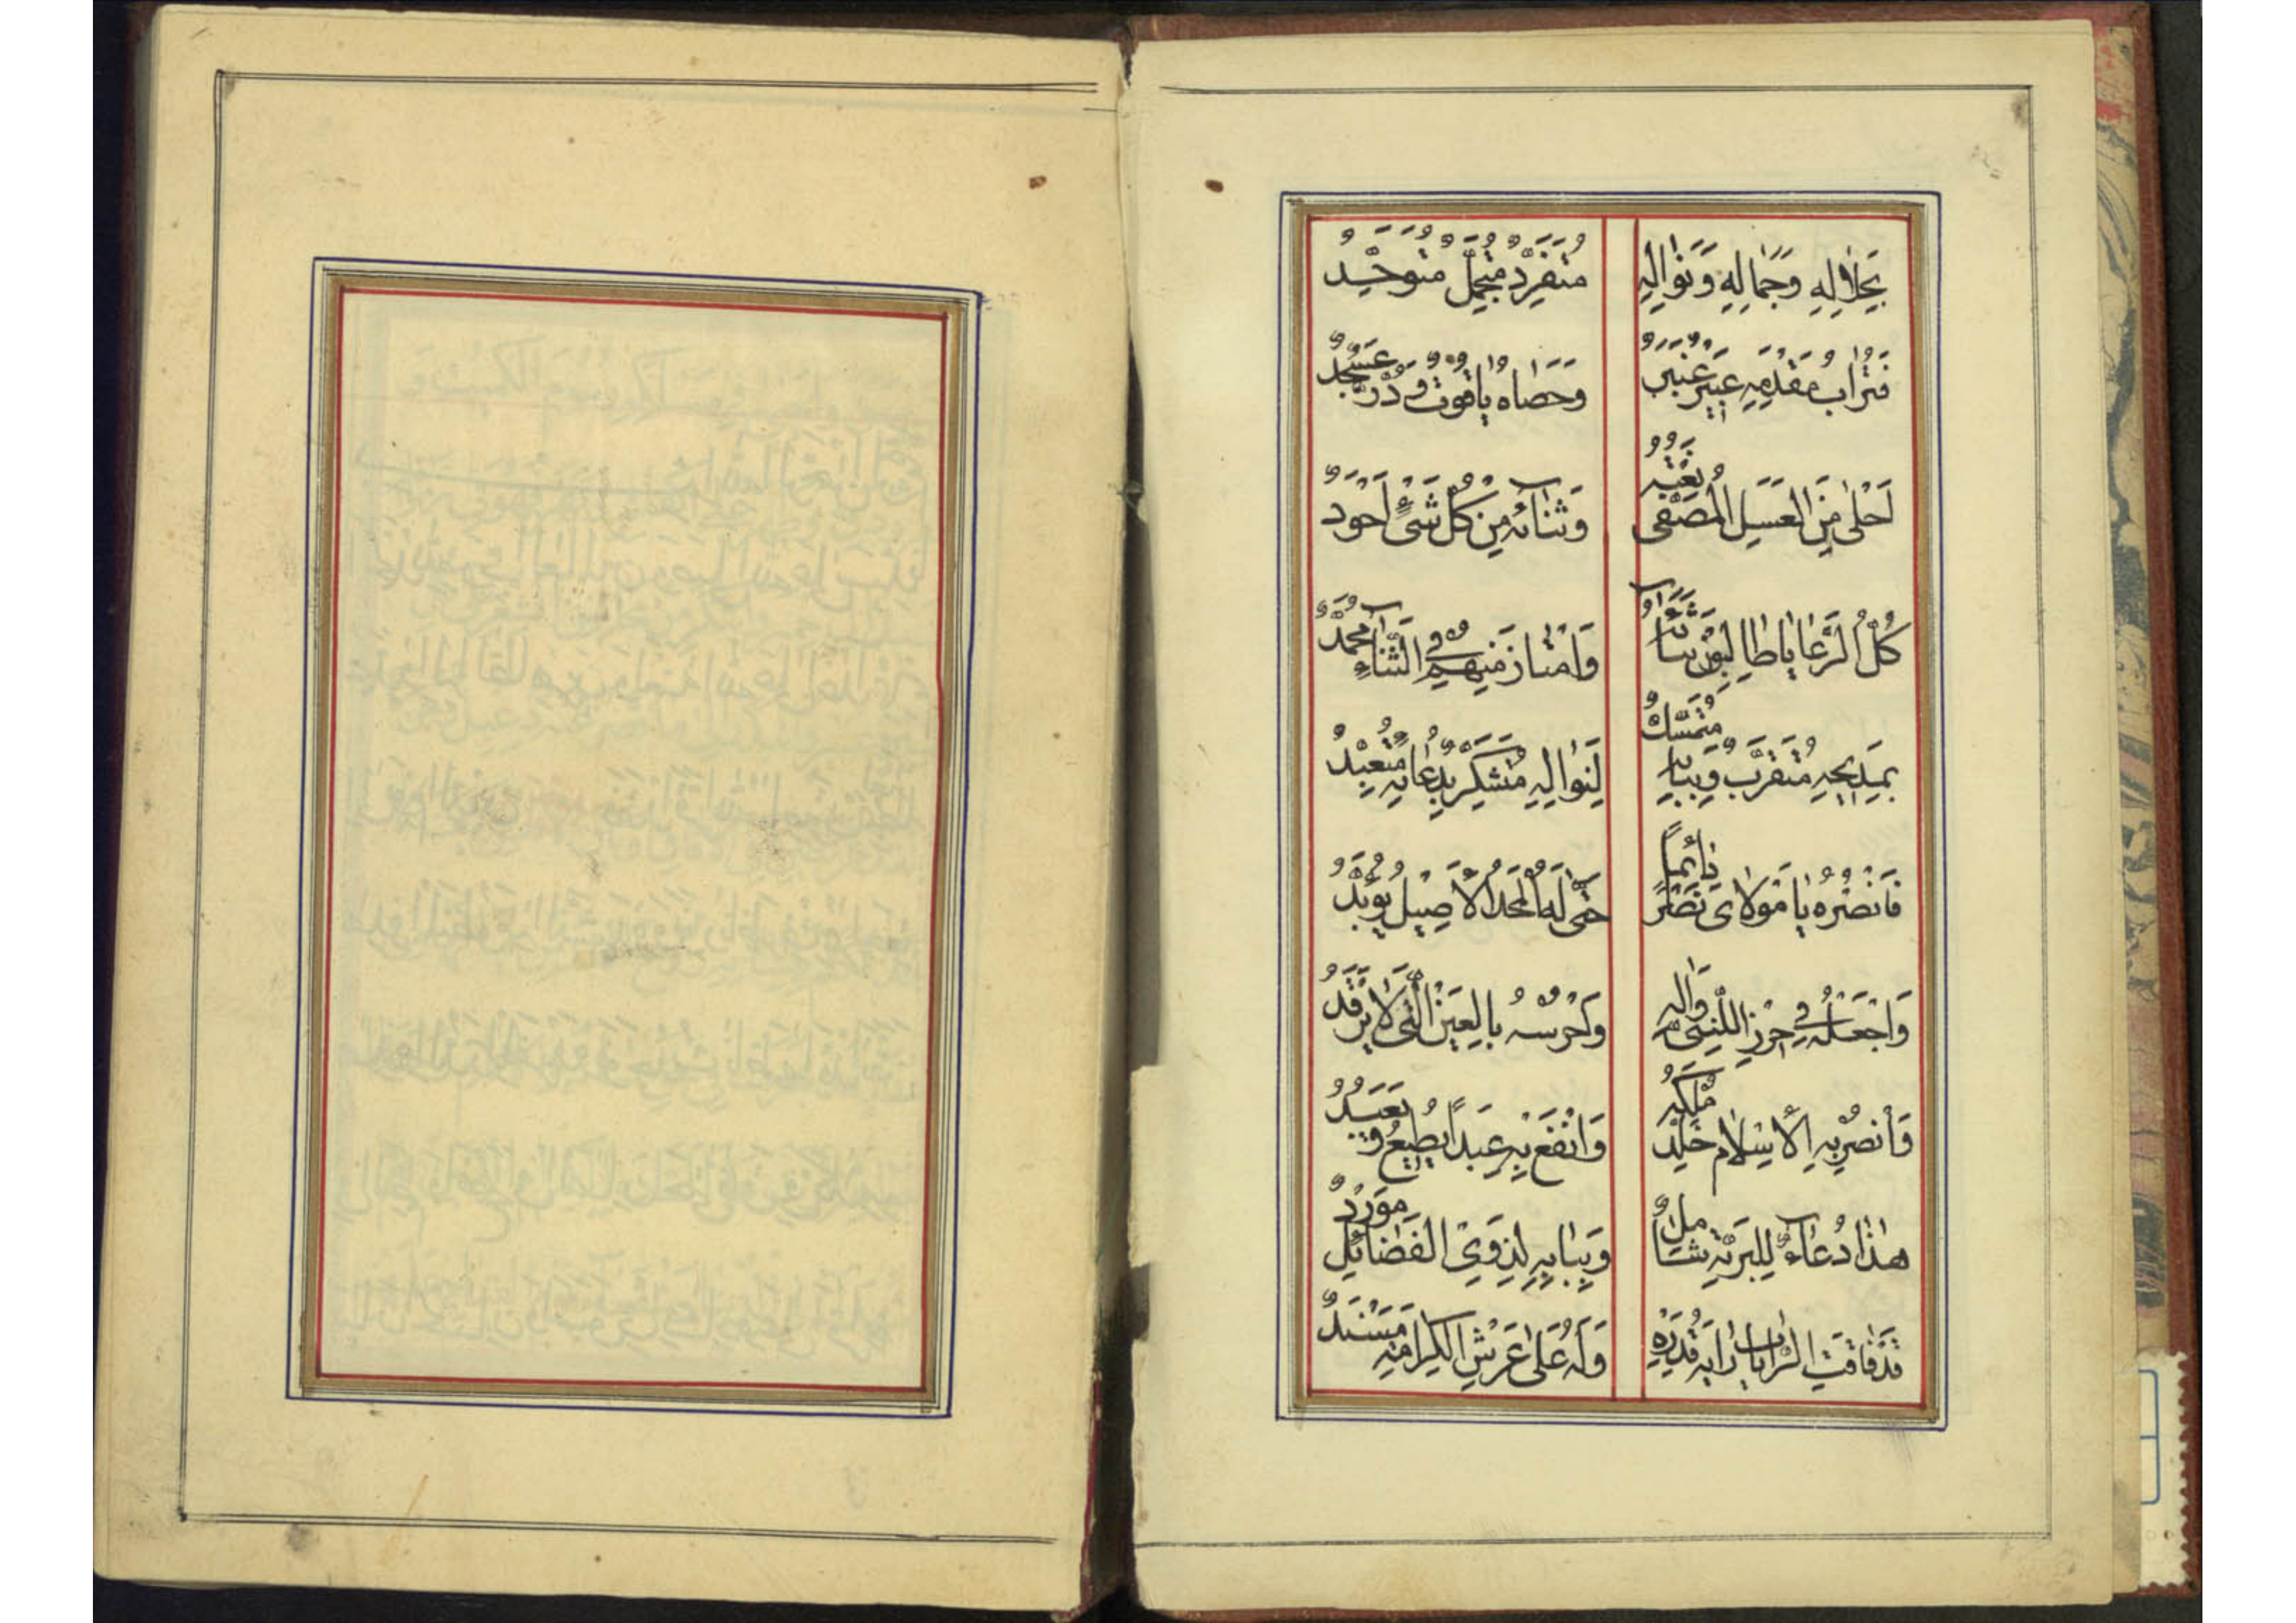 بِجَلٰالِهِ وَجَمٰالِهِ وَنَوٰالِهِ مُتَفَرِّدٌ مُتَجَمِّلٌ مُتَوَحِّدُ
فَتُرٰابُ مَقْدَمِهِ عَبِيرٌ عَنْبَرٌ وَحَصٰاهُ يٰاقُوتٌ وَدُرٌّ عَسْجَدُ
اَحْلىٰ مِنَ الْعَسَلِ الْمُصَفّىٰ نَعْتُهُ وَثَنٰائُهُ مِنْ كُلِّ شَىْءٍ اَجْوَدُ
كُلُّ الرَّعٰايٰا طٰالِبُونَ ثَنٰاءَهُ وَامْتٰازَ مِنْهُمْ فِى الثَّنٰاءِ مُحَمَّدُ
بِمَدِيحِهِ مُتَقَرِّبٌ وَبِبٰابِهِ مُتَمَسِّكٌ لِنَوٰالِهِ مُتَشَكِّرٌ بِدُعٰائِهِ مُتَعَبِّدُ
فَانْصُرْهُ يٰا مَوْلٰاىَ نَصْراً دٰائِماً حَتّىٰ لَهُ الْمَجْدُ الْاَصِيلُ يُؤَبَّدُ
وَاجْعَلْهُ فِى حِرْزِ النَّبِىِّ وَاٰلِهِ وَاحْرُسْهُ بِالْعَيْنِ الَّتِى لٰا يَرْقُدُ
وَانْصُرْ بِهِ الْاِسْلٰامَ خَلِّدْ مُلْكَهُ وَانْفَعْ بِهِ عَبْداً يُطِيعُ وَيَعْبُدُ
هٰذٰا دُعٰاءٌ لِلْبَرِيَّةِ شٰامِلٌ وَبِبٰابِهِ لِذَوِى الْفَضٰائِلِ مَوْرِدُ
قَدْ فٰاقَتِ الرّٰايٰاتِ رٰايَةُ قَدْرِهِ وَلَهُ عَلىٰ عَرْشِ الْكَرٰامَةِ مَسْنَدُ